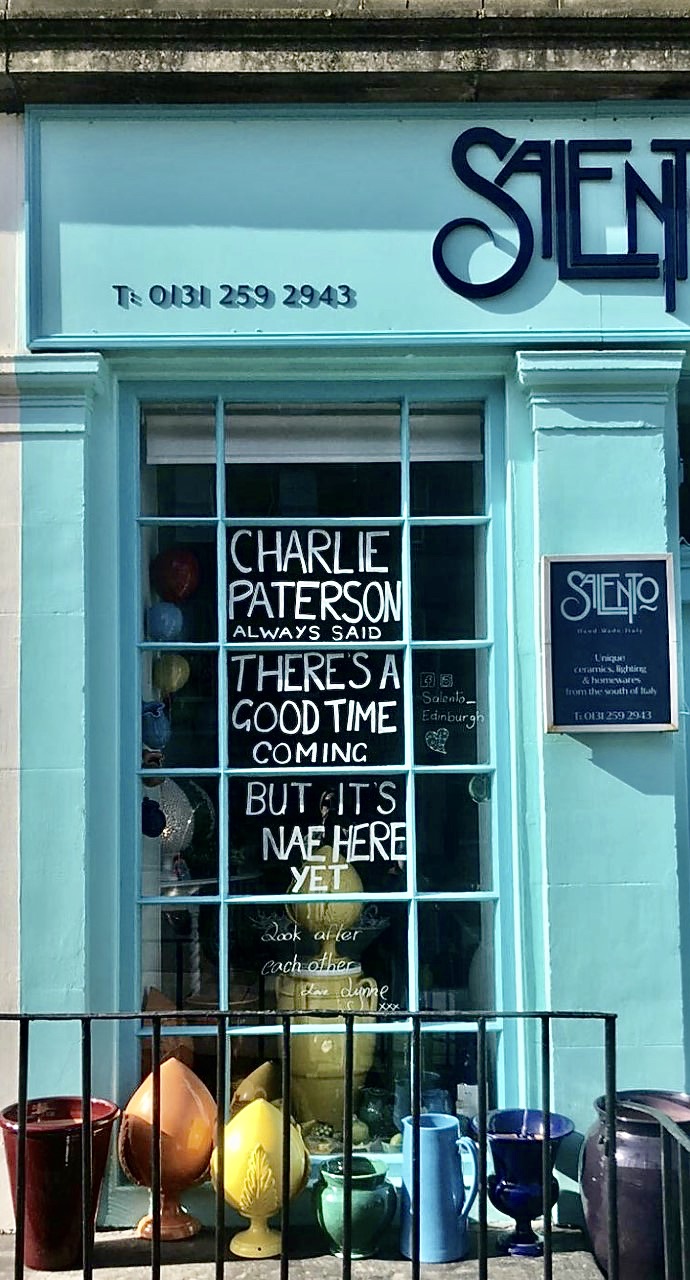 SALENTO
T: 0131 259 2943
CHARLIE
PATERSON
ALWAYS SAID
THERE'S A
GOOD TIME
COMING
BUT IT'S
NAE HERE
YET
Look after
each other
Love Lynne
xxx
Salento_
Edinburgh
SALENTO
Hand Made Italy
Unique
ceramics, lighting
& homewares
from the south of Italy
T: 0131 259 2943